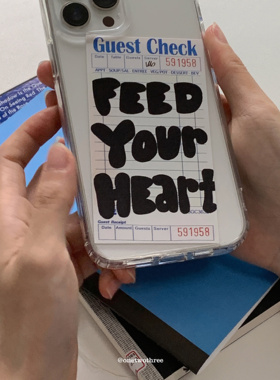 Guest Check
Date Table Guests Server 591958
APPT SOUP/SAL ENTREE VEG/POT DESSERT BEV
FEED
Your
Heart
Guest Receipt
Date Amount Guests Server 591958